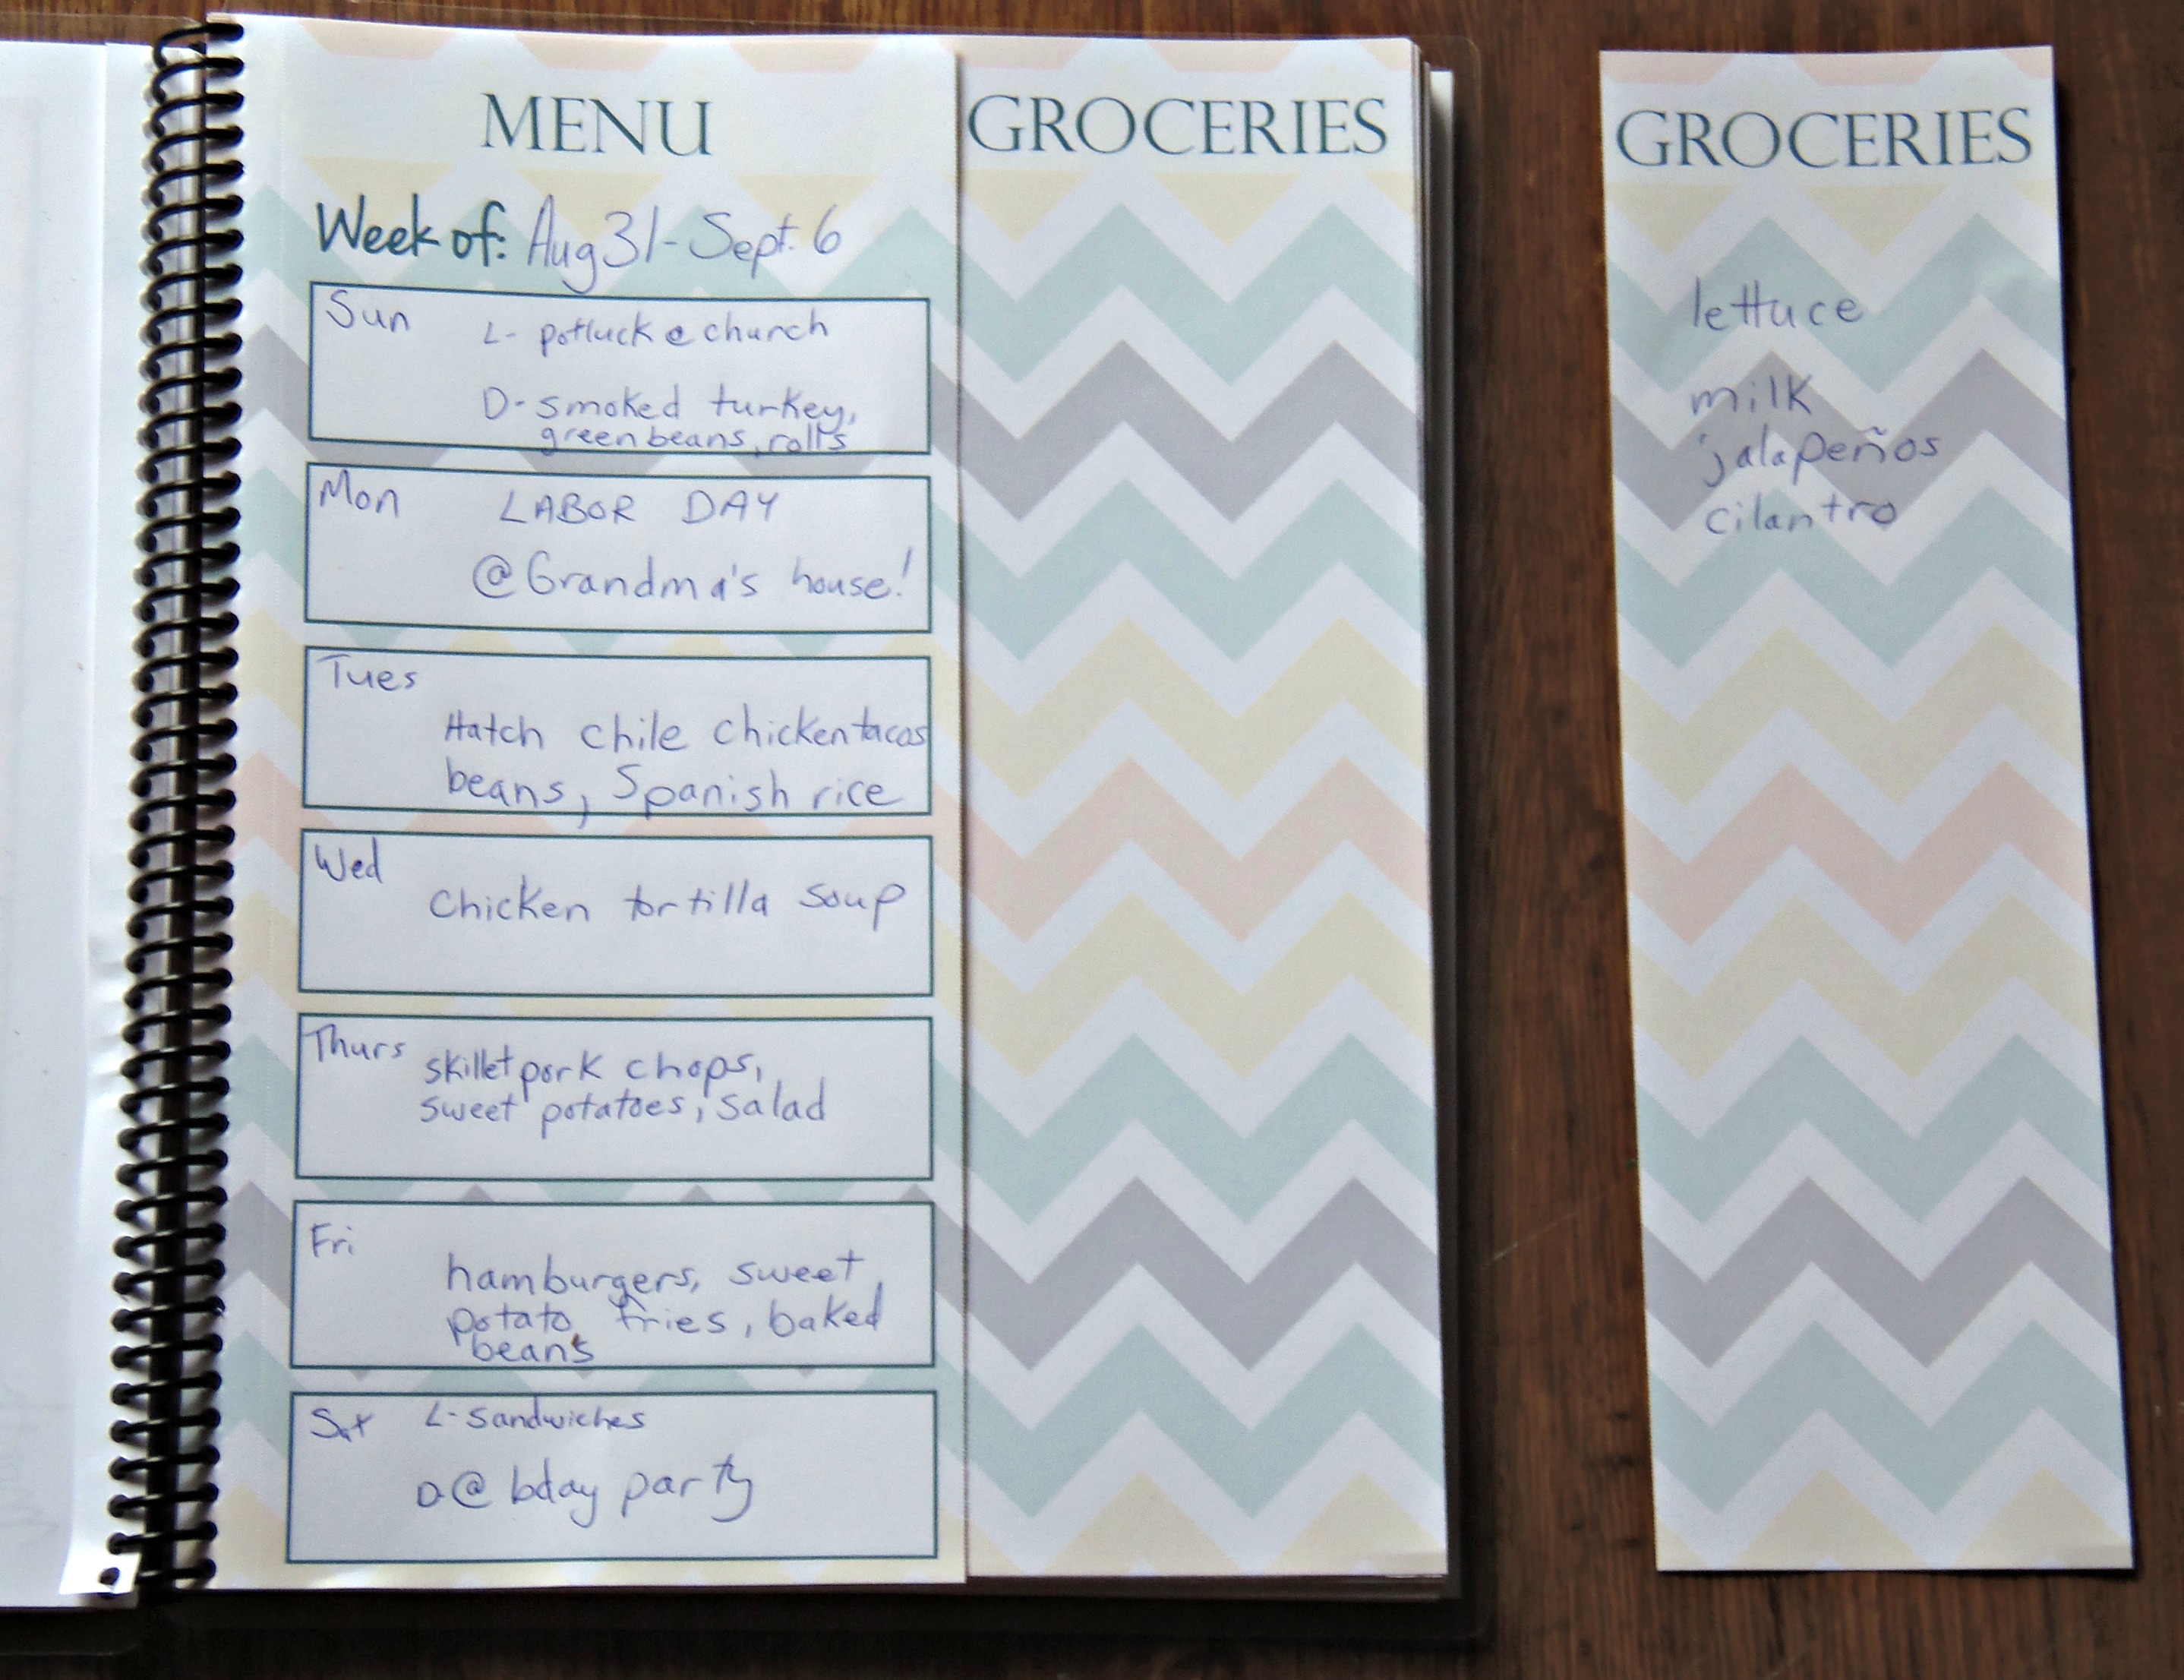 MENU
Week of: Aug 31 - Sept. 6
Sun
L- potluck @ church
D- smoked turkey,
green beans, rolls
Mon
LABOR DAY
@ Grandma's house!
Tues
Hatch chile chicken tacos
beans, Spanish rice
Wed
Chicken tortilla soup
Thurs
skillet pork chops,
sweet potatoes, salad
Fri
hamburgers, sweet
potato fries, baked
beans
Sat
L- Sandwiches
D @ bday party
GROCERIES
GROCERIES
lettuce
milk
jalapeños
cilantro